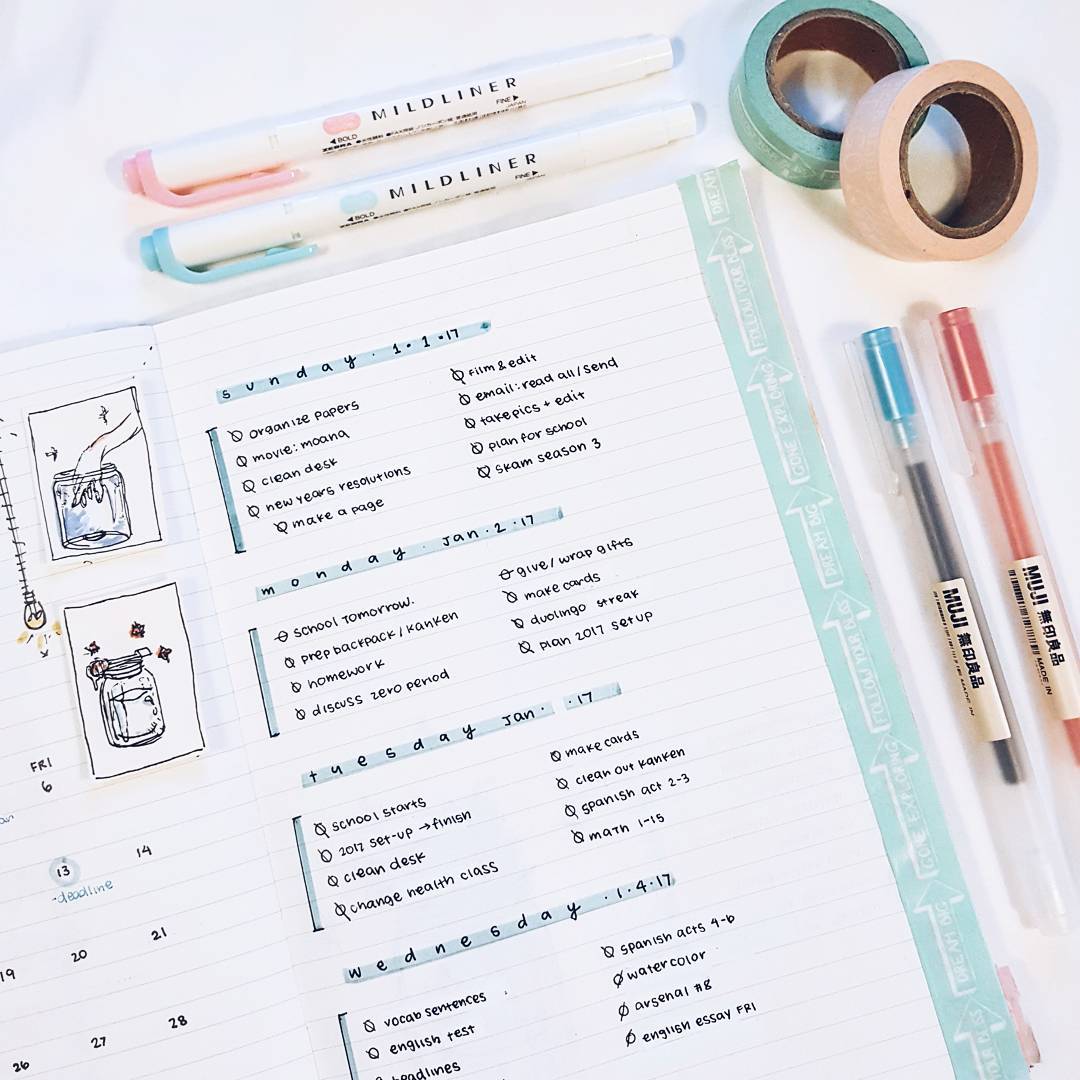 MILDLINER
◀BOLD
FINE▶
JAPAN
MILDLINER
◀BOLD
FINE▶
DREAM
FOLLOW YOUR BLISS
GONE EXPLORING
DREAM BIG
FOLLOW YOUR BLISS
GONE EXPLORING
DREAM BIG
YOUR BLISS
MUJI 無印良品
MADE IN
MUJI 無印良品
MADE IN
sunday · 1·1·17
organize papers
movie: moana
clean desk
new years resolutions
make a page
film & edit
email: read all/send
take pics + edit
plan for school
skam season 3
monday · Jan · 2 · 17
school tomorrow.
prep backpack / kanken
homework
discuss zero period
give / wrap gifts
make cards
duolingo streak
plan 2017 set up
tuesday Jan · · 17
school starts
2017 set-up → finish
clean desk
change health class
make cards
clean out kanken
spanish act 2-3
math 1-15
wednesday · 1·4·17
vocab sentences
english test
spanish acts 4-6
watercolor
arsenal #8
english essay FRI
FRI
6
13
14
-deadline
19
20
21
26
27
28